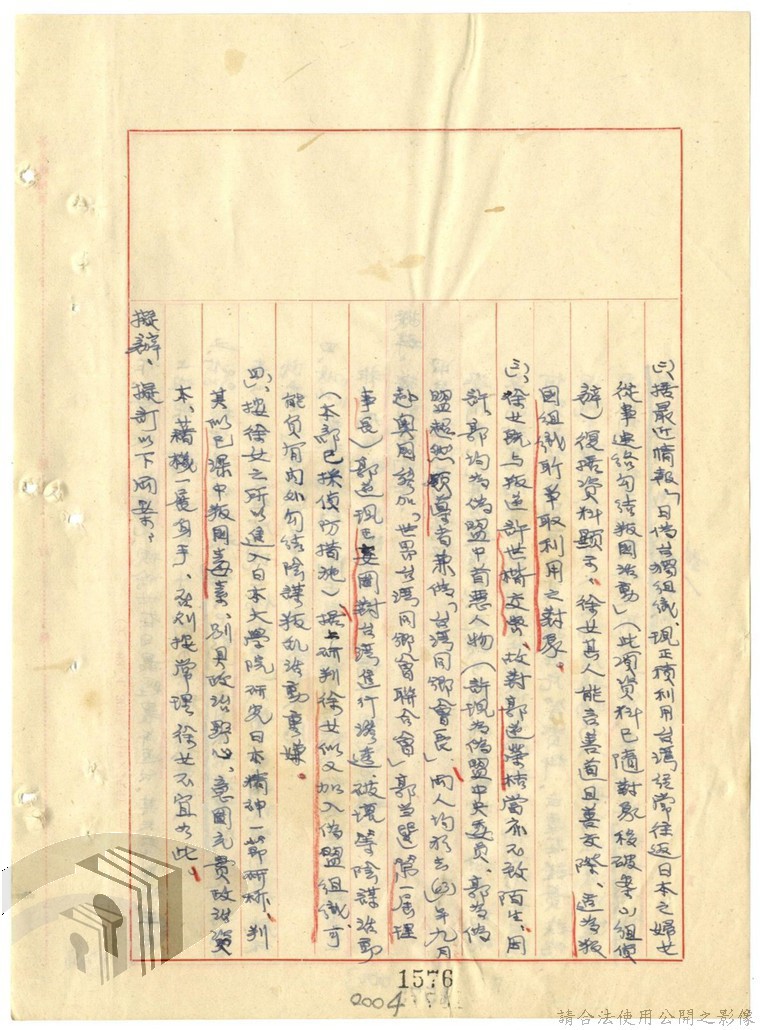 ㈡、據最近情報「日偽台獨組織、現正積利用台灣経常往返日本之婦女
從事連絡勾結叛國活動」（此獨資料已隨對象移破案小組偵
辦）復據資料顯示、徐女其人能言善道且善交際、適為叛
國組織所爭取利用之對象、
㈢、徐女既與叛逆許世楷交密、故對郭逆榮桔當亦不致陌生、因
許、郭均為偽盟中首惡人物（許現為偽盟中央委員、郭為偽
盟超然領導者兼偽「台灣同鄉會長」兩人均於去(63)年九月
赴奧國参加「世界台灣同鄉會聯合會」郭当選第一届理
事長）郭逆現已妄圖對台湾進行滲透、破壞等陰謀活動
（本部已採偵防措施）據上研判徐女似又加入偽盟組織、可
能負有內外勾結陰謀叛乱活動重嫌、
四、按徐女之所以進入日本大學院研究日本精神一節研析、判
其似已深中叛國毒素、別具政治野心、意圖充實政治資
本、藉機一展身手、否則按常理徐女不宜如此、
擬辦、擬訂以下兩案、
1576
2004
請合法使用公開之影像